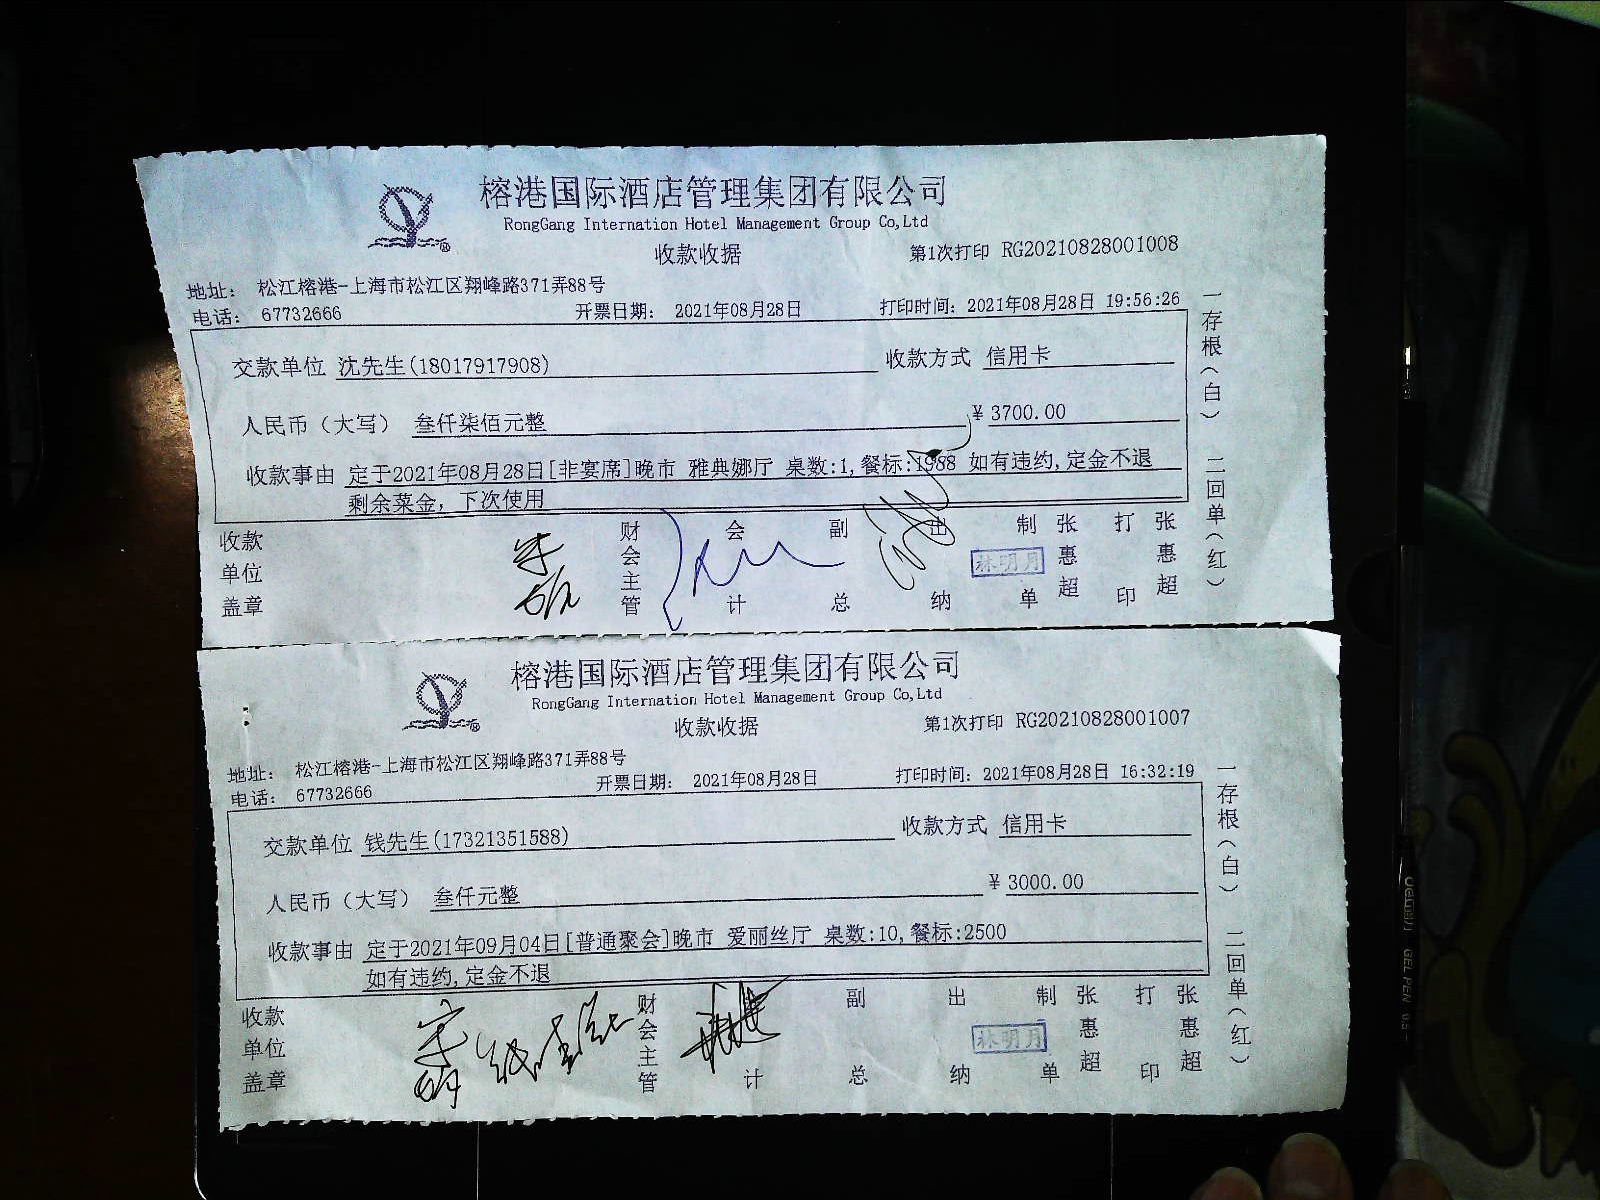 榕港国际酒店管理集团有限公司
RongGang Internation Hotel Management Group Co,Ltd
收款收据
第1次打印 RG20210828001008
地址: 松江榕港-上海市松江区翔峰路371弄88号
电话: 67732666 开票日期: 2021年08月28日 打印时间: 2021年08月28日 19:56:26
交款单位 沈先生(18017917908) 收款方式 信用卡
人民币(大写) 叁仟柒佰元整 ¥3700.00
收款事由 定于2021年08月28日[非宴席]晚市 雅典娜厅 桌数:1,餐标:1988 如有违约,定金不退
剩余菜金, 下次使用
收款单位盖章 财会主管 会计 副总 出纳 林明月 制单 张惠超 打印 张惠超
一存根(白) 二回单(红)
榕港国际酒店管理集团有限公司
RongGang Internation Hotel Management Group Co,Ltd
收款收据
第1次打印 RG20210828001007
地址: 松江榕港-上海市松江区翔峰路371弄88号
电话: 67732666 开票日期: 2021年08月28日 打印时间: 2021年08月28日 16:32:19
交款单位 钱先生(17321351588) 收款方式 信用卡
人民币(大写) 叁仟元整 ¥3000.00
收款事由 定于2021年09月04日[普通聚会]晚市 爱丽丝厅 桌数:10,餐标:2500
如有违约,定金不退
收款单位盖章 财会主管 计 副总 出纳 林明月 制单 张惠超 打印 张惠超
一存根(白) 二回单(红)
GEL PEN 0.5